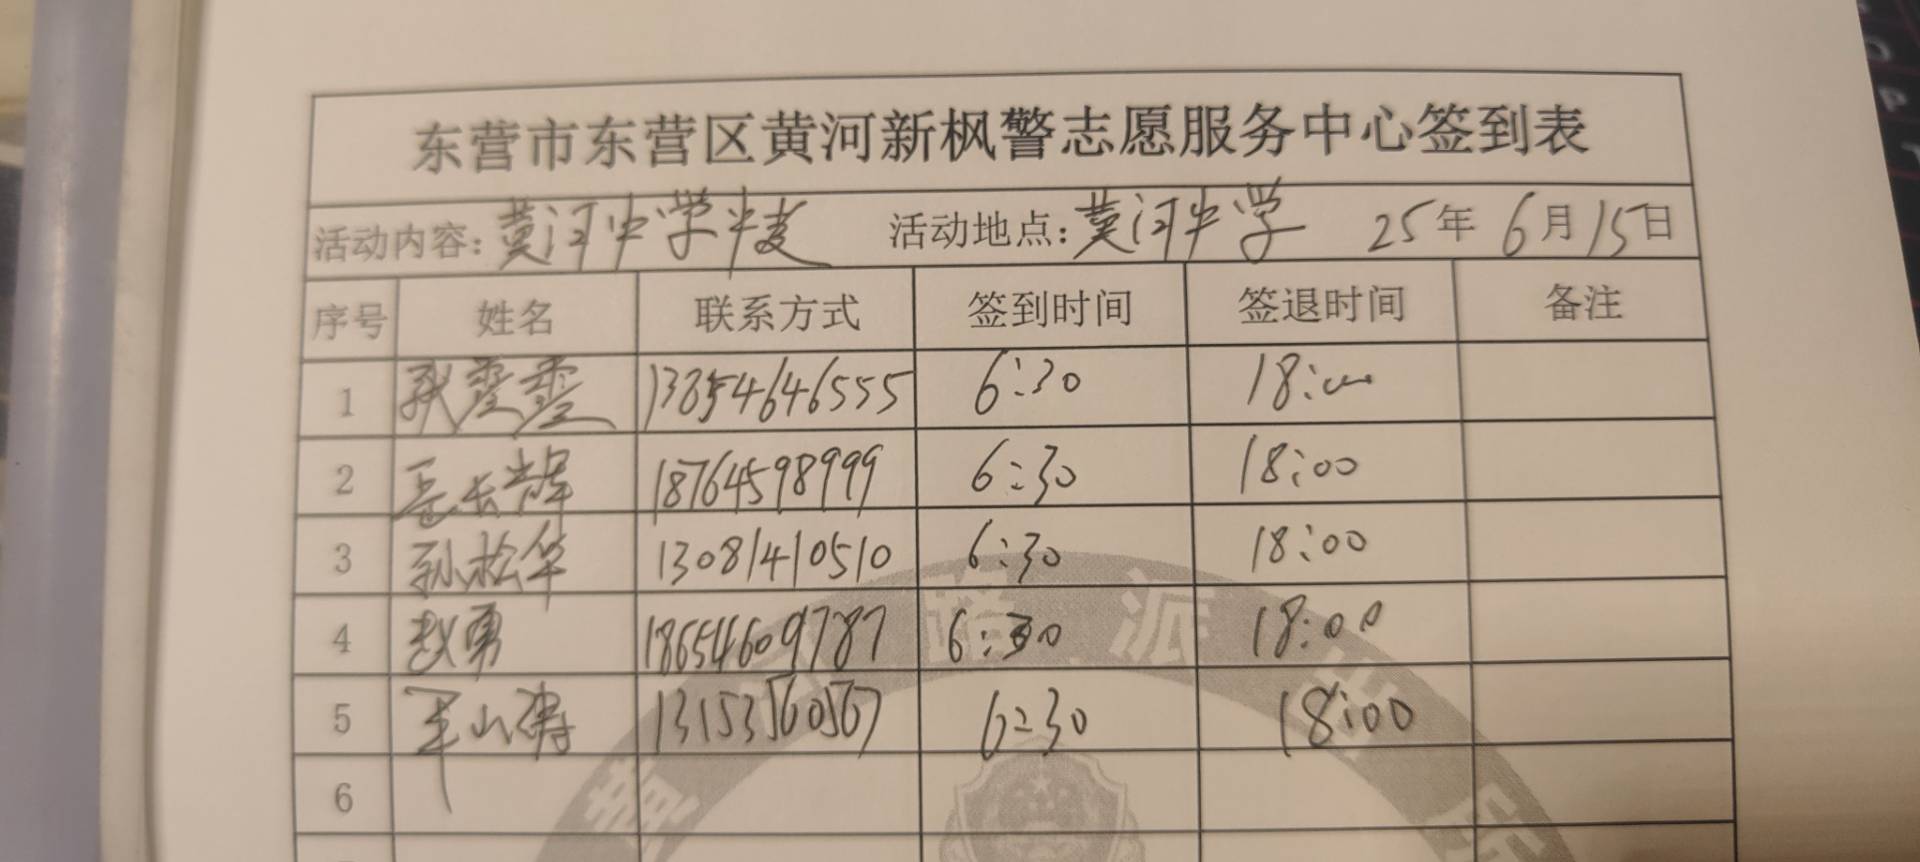 东营市东营区黄河新枫警志愿服务中心签到表
活动内容：黄河中学中考 活动地点：黄河中学 25年 6月15日
序号 姓名 联系方式 签到时间 签退时间 备注
1 张雪雪 13854646555 6:30 18:00
2 岳长辉 18764598999 6:30 18:00
3 孙松华 13081410510 6:30 18:00
4 赵勇 18654609787 6:30 18:00
5 山涛 13153560567 6:30 18:00
6
路派出所